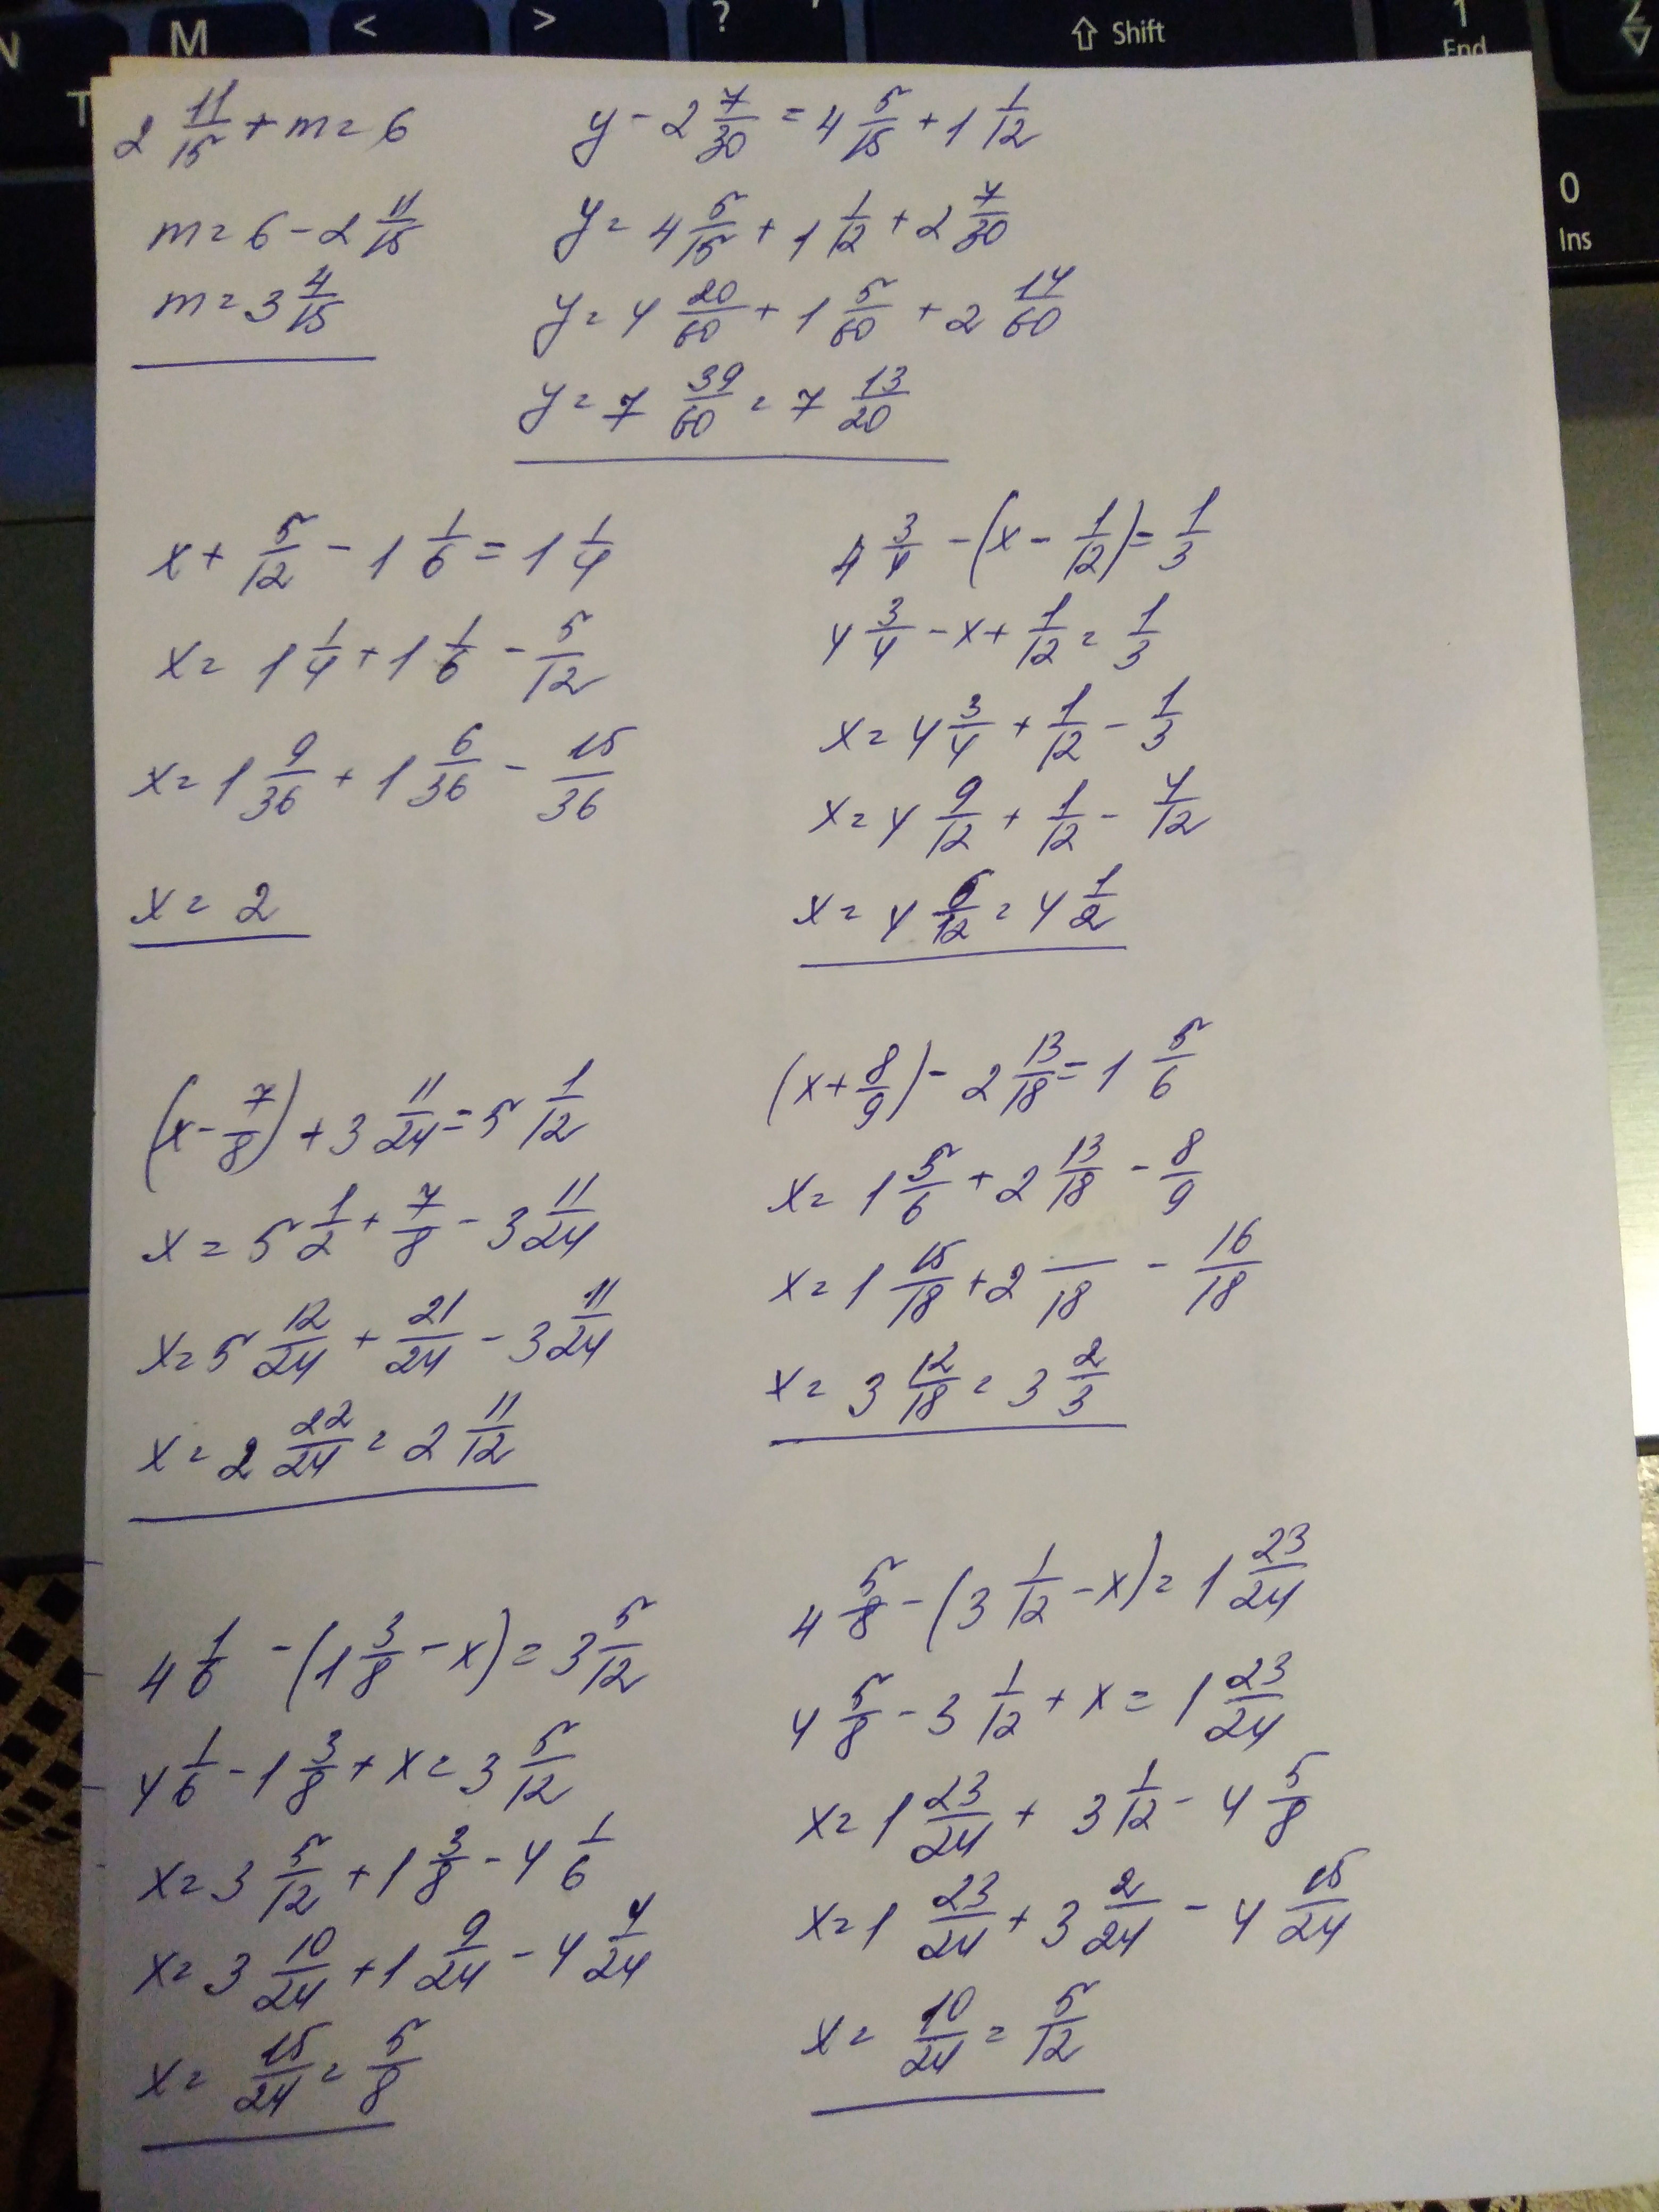 N M < > ? ⇧ Shift 1 End 2
T
0
Ins
2 11/15 + m = 6
m = 6 - 2 11/15
m = 3 4/15
y - 2 7/30 = 4 5/15 + 1 1/12
y = 4 5/15 + 1 1/12 + 2 7/30
y = 4 20/60 + 1 5/60 + 2 14/60
y = 7 39/60 = 7 13/20
x + 5/12 - 1 1/6 = 1 1/4
x = 1 1/4 + 1 1/6 - 5/12
x = 1 9/36 + 1 6/36 - 15/36
x = 2
4 3/4 - (x - 1/12) = 1/3
4 3/4 - x + 1/12 = 1/3
x = 4 3/4 + 1/12 - 1/3
x = 4 9/12 + 1/12 - 4/12
x = 4 6/12 = 4 1/2
(x - 7/8) + 3 11/24 = 5 1/12
x = 5 1/2 + 7/8 - 3 11/24
x = 5 12/24 + 21/24 - 3 11/24
x = 2 22/24 = 2 11/12
(x + 8/9) - 2 13/18 = 1 5/6
x = 1 5/6 + 2 13/18 - 8/9
x = 1 15/18 + 2 /18 - 16/18
x = 3 12/18 = 3 2/3
4 1/6 - (1 3/8 - x) = 3 5/12
4 1/6 - 1 3/8 + x = 3 5/12
x = 3 5/12 + 1 3/8 - 4 1/6
x = 3 10/24 + 1 9/24 - 4 4/24
x = 15/24 = 5/8
4 5/8 - (3 1/12 - x) = 1 23/24
4 5/8 - 3 1/12 + x = 1 23/24
x = 1 23/24 + 3 1/12 - 4 5/8
x = 1 23/24 + 3 2/24 - 4 15/24
x = 10/24 = 5/12